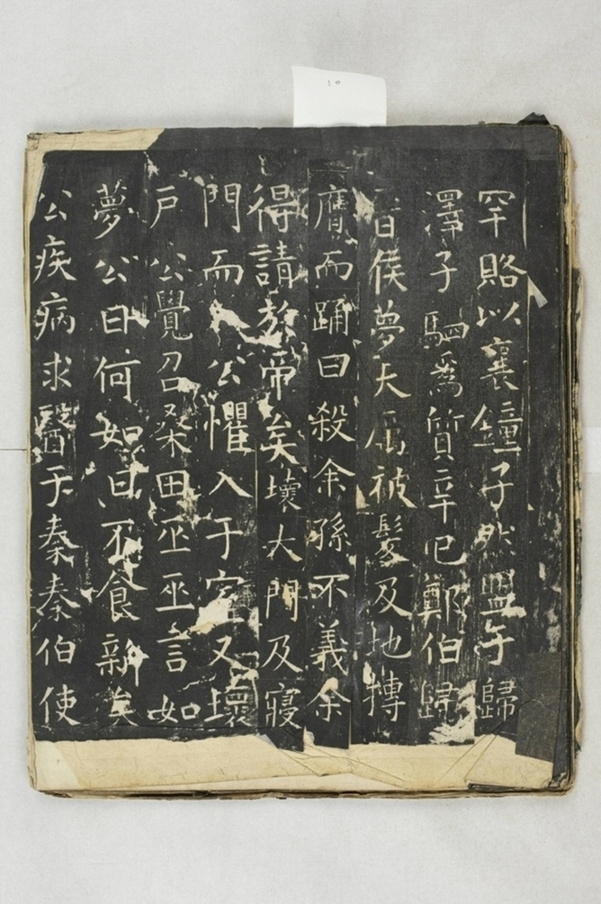 罕賂以襄鐘子然盟于歸
澤子駟為質辛巳鄭伯歸
晉侯夢大厲被髮及地搏
膺而踊曰殺余孫不義余
得請於帝矣壞大門及寢
門而入公懼入于室又壞
戶公覺召桑田巫巫言如
夢公曰何如曰不食新矣
公疾病求醫于秦秦伯使